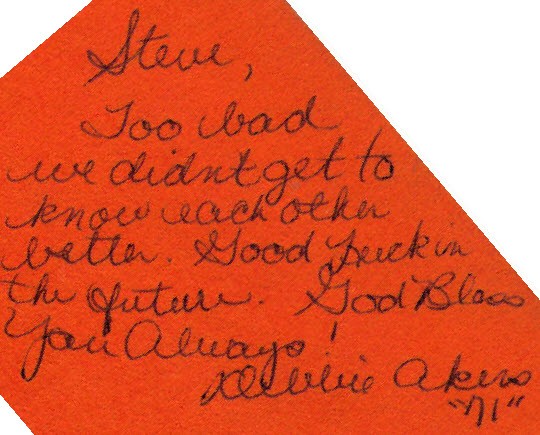 Steve,
Too bad
we didn't get to
know each other
better. Good luck in
the future. God Bless
You Always!
Debbie Akers
"71"